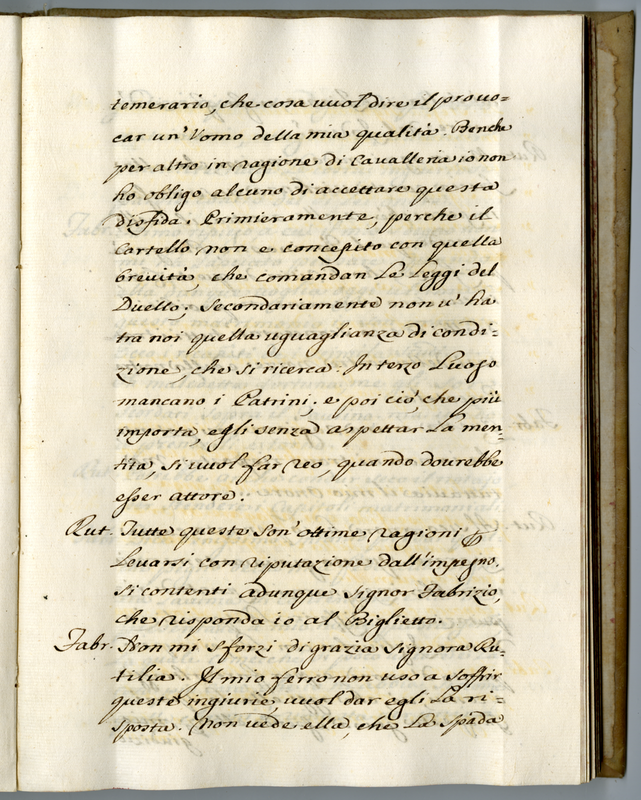 temerario, che cosa vuol dire il provo=
car un' Vomo della mia qualità. Benche
per altro in ragione di Cavalleria io non
ho obligo alcuno di accettare questa
disfida. Primieramente, perche il
Cartello non e concepito con quella
brevità, che comandan Le Leggi del
Duello; Secondariamente non u' ha
tra noi quella uguaglianza di condi=
zione, che si ricerca. In terzo Luogo
mancano i Patrini; e poi ciò, che più
importa, egli senza aspettar La men=
tita, si vuol far reo, quando dourebbe
esser attore.
Rut. Tutte queste son' ottime ragioni p
Levarsi con riputazione dall'impegno.
Si contenti adunque Signor Fabrizio,
che risponda io al Biglietto.
Fabr. Non mi sforzi di grazia Signora Ru=
tilia. Il mio ferro non uso a soffrir
queste ingiurie, vuol dar egli La ri=
sposta. Non vede ella, che La Spada